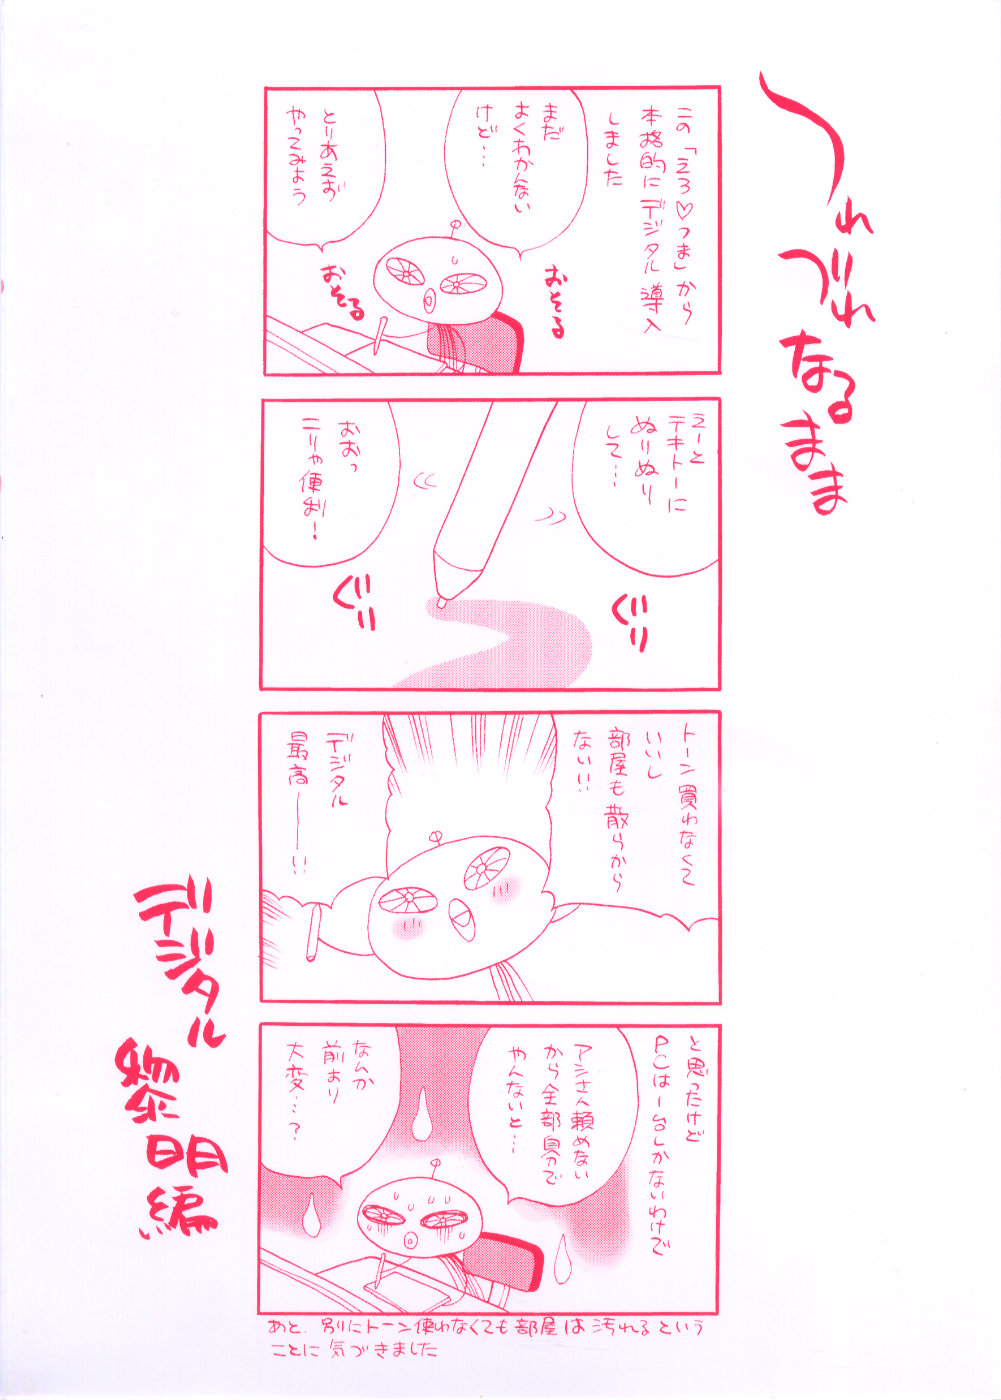 つれづれ
なる
まま
この「えろ♡つま」から
本格的にデジタル導入
しました
まだ
よくわかんない
けど…
おそる
とりあえず
やってみよう
おそる
えーと
テキトーに
ぬりぬり
して…
ぐりり
おおっ
こりゃ便利！
ぐりり
トーン買わなくて
いいし
部屋も散らから
ない!!
デジタル
最高――い
と思ったけど
PCは一台しかないわけで
アシさん頼めない
から全部自分で
やんないと…
なんか
前より
大変…？
あと、別にトーン使わなくても部屋は汚れるという
ことに気づきました
デジタル
黎明編